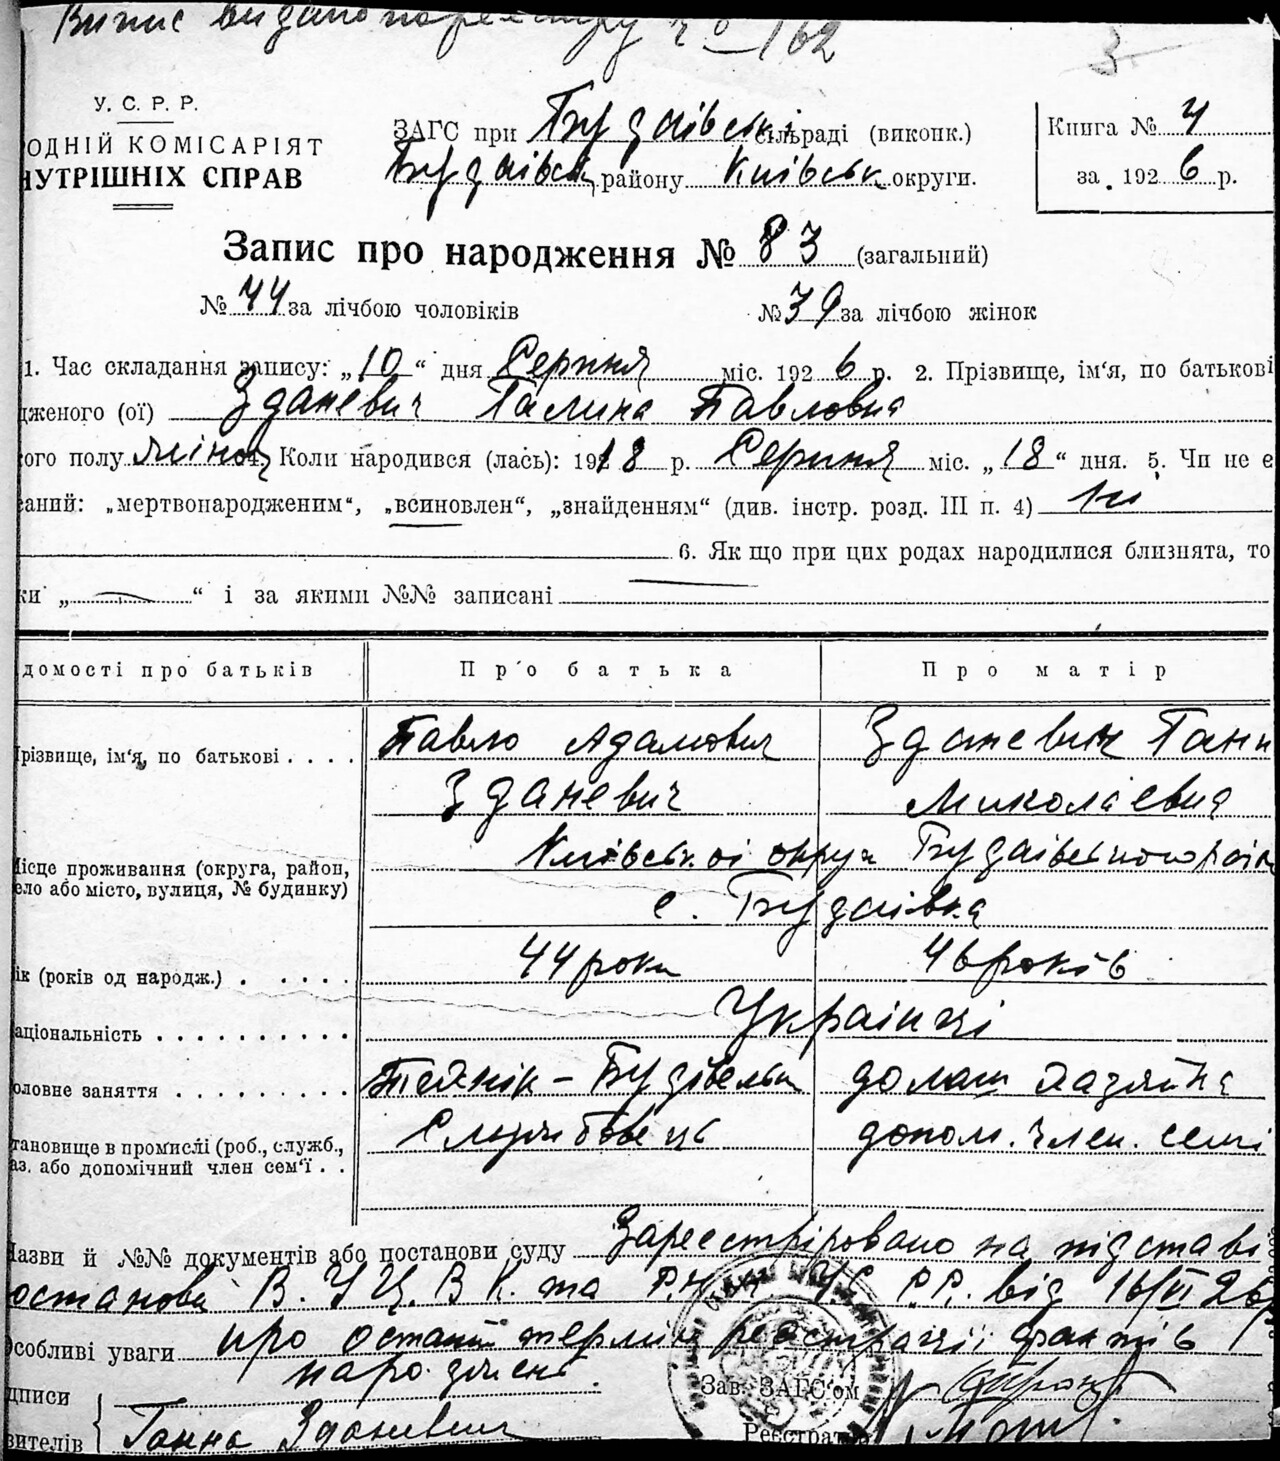 Випис видано по реєстру № 162
3
У. С. Р. Р.
РОДНІЙ КОМІСАРІЯТ
НУТРІШНІХ СПРАВ
ЗАГС при Будаївські сільраді (виконк.)
Будаївськ району Київськ округи.
Книга № 4
за 1926 р.
Запис про народження № 83 (загальний)
№ 44 за лічбою чоловіків № 39 за лічбою жінок
1. Час складання запису: „10“ дня Серпня міс. 1926 р. 2. Прізвище, ім'я, по батькові
дженого (ої) Зданевич Галина Павловна
ого полу жіноч 4. Коли народився (лась): 1918 р. Серпня міс. „18“ дня. 5. Чи не є
аний: „мертвонародженим“, „всиновлен“, „знайденням“ (див. інстр. розд. III п. 4) ні
6. Як що при цих родах народилися близнята, то
ки „ “ і за якими №№ записані
домості про батьків Про батька Про матір
Прізвище, ім'я, по батькові . . . . Павло Адамович Зданевич Ганн
Зданевич Миколаєвна
Місце проживання (округа, район, Київськ.ої округи Будаївського рай
ело або місто, вулиця, № будинку) с. Будаївка
ік (років од народж.) . . . . . . 44 роки 46 років
аціональність . . . . . . . . . . Українці
оловне заняття . . . . . . . . . Технік – Будівельн домаш хазяйка
тановище в промислі (роб., служб., Службовець допом. член. семї
аз. або допомічний член сем'ї . .
Назви й №№ документів або постанови суду Зареєстріровано на підставі
останови В.У.Ц.В.К. та Р.Н.К. У.С.Р.Р. від 16/VI 26р
Особливі уваги про останій термін реєстрації фактів
народження
дписи
Зав. ЗАГС'ом
вителів Ганна Зданевич
Реєстратор